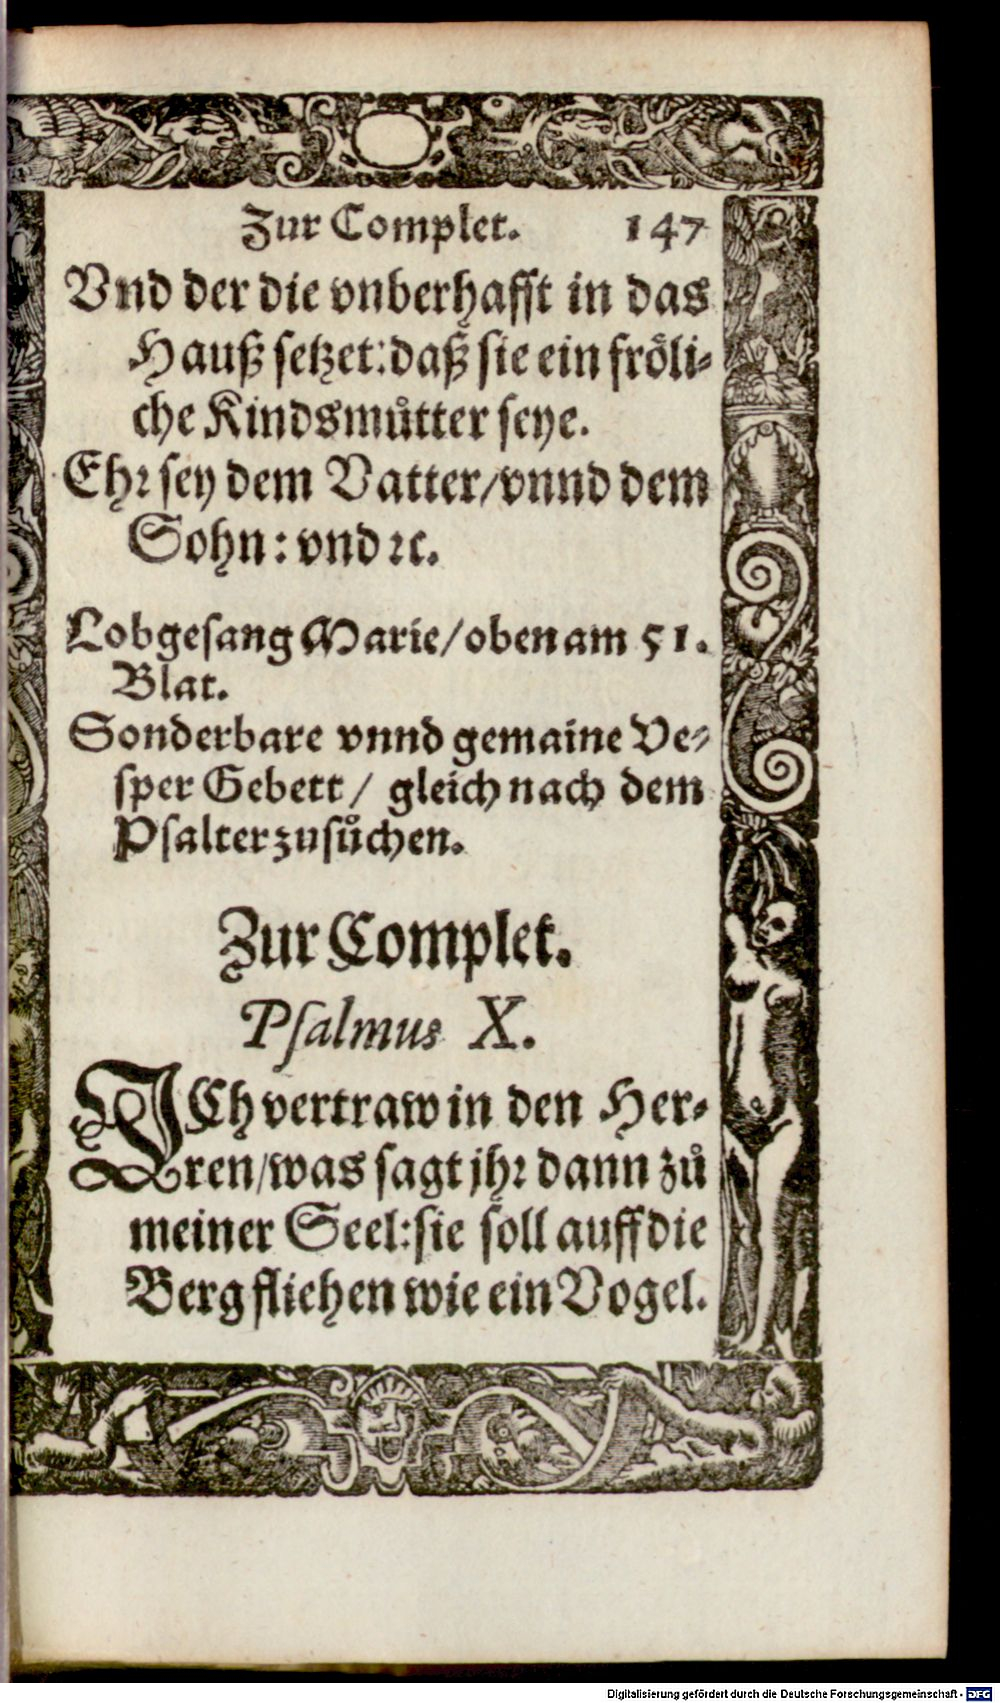 Zur Complet. 147
Vnd der die vnberhafft in das
Hauß setzet: daß sie ein fröli-
che Kindsmůtter seye.
Ehr sey dem Vatter/vnnd dem
Sohn: vnd ꝛc.
Lobgesang Marie/oben am 51.
Blat.
Sonderbare vnnd gemaine Ve-
sper Gebett/ gleich nach dem
Psalter zusůchen.
Zur Complet.
Psalmus X.
ICh vertraw in den Her-
ren/was sagt jhr dann zů
meiner Seel: sie soll auff die
Berg fliehen wie ein Vogel.
Digitalisierung gefördert durch die Deutsche Forschungsgemeinschaft - DFG